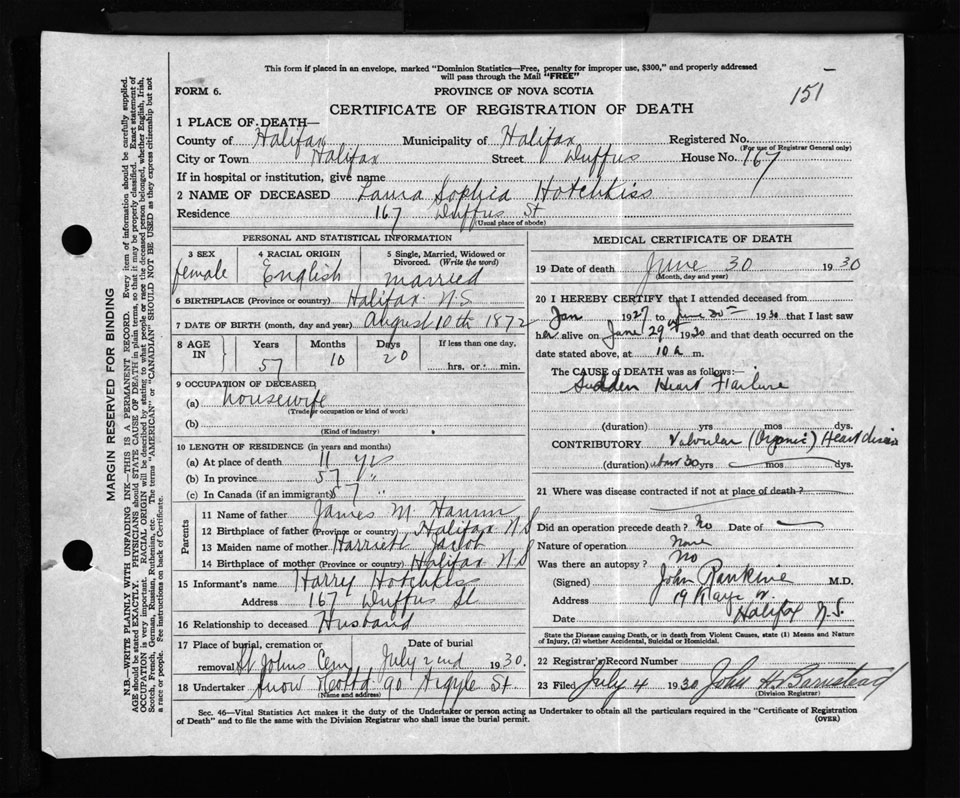 This form if placed in an envelope, marked "Dominion Statistics—Free, penalty for improper use, $300," and properly addressed
will pass through the Mail "FREE"
151
FORM 6.
PROVINCE OF NOVA SCOTIA
CERTIFICATE OF REGISTRATION OF DEATH
1 PLACE OF DEATH—
County of Halifax Municipality of Halifax Registered No.
(For use of Registrar General only)
City or Town Halifax Street Duffus House No. 167
If in hospital or institution, give name
2 NAME OF DECEASED Laura Sophia Hotchkiss
Residence 167 Duffus St
(Usual place of abode)
PERSONAL AND STATISTICAL INFORMATION
3 SEX 4 RACIAL ORIGIN 5 Single, Married, Widowed or Divorced. (Write the word)
female English married
6 BIRTHPLACE (Province or country) Halifax N.S
7 DATE OF BIRTH (month, day and year) August 10th 1872
8 AGE IN Years Months Days If less than one day,
57 10 20 hrs. or min.
9 OCCUPATION OF DECEASED
(a) housewife
(Trade or occupation or kind of work)
(b)
(Kind of industry)
10 LENGTH OF RESIDENCE (in years and months)
(a) At place of death 11 yrs
(b) In province 57 "
(c) In Canada (if an immigrant) 57 "
Parents
11 Name of father James M. Hamm
12 Birthplace of father (Province or country) Halifax N S
13 Maiden name of mother Harriett
14 Birthplace of mother (Province or country) Halifax N S
15 Informant's name Harry Hotchkiss
Address 167 Duffus St
16 Relationship to deceased Husband
17 Place of burial, cremation or removal St Johns Cem Date of burial July 2nd 1930.
18 Undertaker Snow & Co Ltd 90 Argyle St
(Name and address)
MEDICAL CERTIFICATE OF DEATH
19 Date of death June 30 1930
(Month, day and year)
20 I HEREBY CERTIFY that I attended deceased from
Jan 1927 to June 30th 1930 that I last saw
her alive on June 29th 1930 and that death occurred on the
date stated above, at 10 a m.
The CAUSE of DEATH was as follows:—
Sudden Heart Failure
(duration) yrs mos dys.
CONTRIBUTORY Valvular (Organic) Heart disease
(duration) about 30 yrs mos dys.
21 Where was disease contracted if not at place of death?
Did an operation precede death? No Date of
Nature of operation None
Was there an autopsy? No
(Signed) John Rankine M.D.
Address 19
Date Halifax N.S.
State the Disease causing Death, or in death from Violent Causes, state (1) Means and Nature
of Injury, (2) whether Accidental, Suicidal or Homicidal.
22 Registrar's Record Number
23 Filed July 4 1930 John H. Barnstead
(Division Registrar)
Sec. 46—Vital Statistics Act makes it the duty of the Undertaker or person acting as Undertaker to obtain all the particulars required in the "Certificate of Registration
of Death" and to file the same with the Division Registrar who shall issue the burial permit.
(OVER)
MARGIN RESERVED FOR BINDING
N.B.—WRITE PLAINLY WITH UNFADING INK—THIS IS A PERMANENT RECORD. Every item of information should be carefully supplied.
AGE should be stated EXACTLY. PHYSICIANS should STATE CAUSE OF DEATH in plain terms, so that it may be properly classified. Exact statement of
OCCUPATION is very important. RACIAL ORIGIN will be described by stating to what people or race the deceased person belonged, whether English, Irish,
Scotch, French, German, Russian, Ruthenian, etc. The terms "AMERICAN" or "CANADIAN" SHOULD NOT BE USED as they express citizenship but not
a race or people. See instructions on back of Certificate.